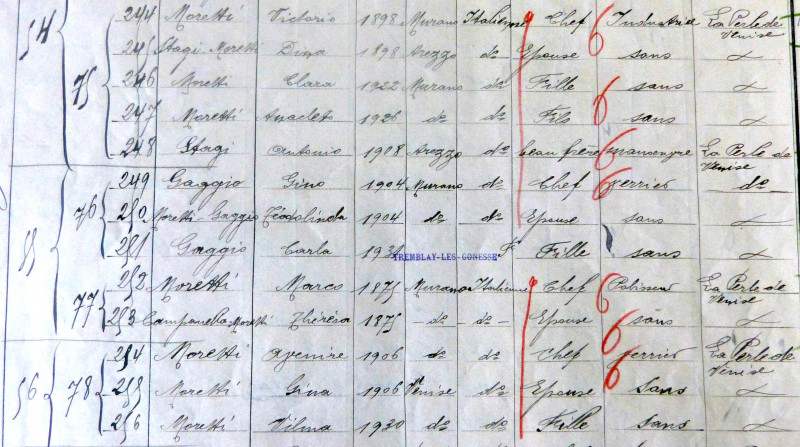 54 75 244 Moretti Victorio 1898 Murano Italienne Chef 6 Industriel La Perle de Venise
245 Stagi-Moretti Dina 1898 Arezzo do Epouse sans
246 Moretti Clara 1922 Murano do Fille sans
247 Moretti Anacleto 1926 do do Fils 6 sans
248 Stagi Antonio 1908 Arezzo do beau frère 6 manoeuvre La Perle de Venise
55 76 249 Gaggio Gino 1904 Murano do Chef 6 verrier do
250 Moretti-Gaggio Téodolinda 1904 do do Epouse sans
251 Gaggio Carla 1931 TREMBLAY-LES-GONESSE Fse Fille sans
77 252 Moretti Marco 1875 Murano Italienne Chef 6 Polisseur La Perle de Venise
253 Campanella Moretti Thérésa 1875 do do Epouse 6 sans
56 78 254 Moretti Avenire 1906 do do Chef 6 verrier La Perle de Venise
255 Moretti Gina 1906 Venise do Epouse sans
256 Moretti Vilma 1930 do do Fille sans